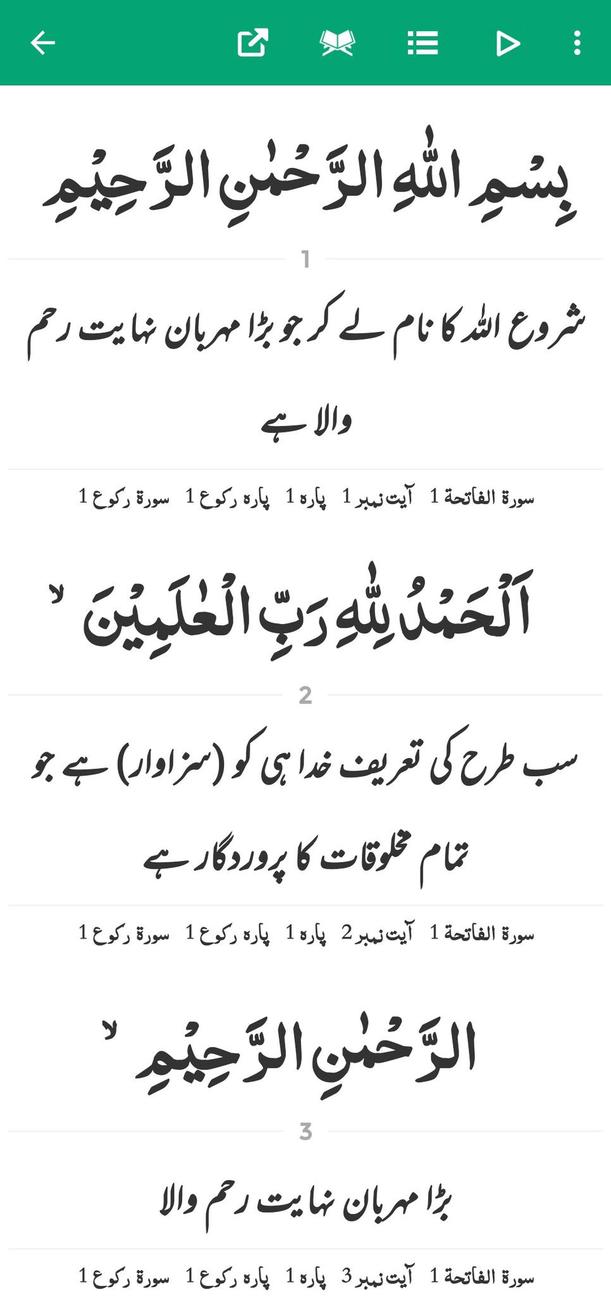 بِسْمِ اللّٰهِ الرَّحْمٰنِ الرَّحِيْمِ
1
شروع اللہ کا نام لے کر جو بڑا مہربان نہایت رحم
والا ہے
سورة الفاتحة 1 آیت نمبر 1 پارہ 1 پارہ رکوع 1 سورة رکوع 1
اَلْحَمْدُ لِلّٰهِ رَبِّ الْعٰلَمِيْنَ ۙ
2
سب طرح کی تعریف خدا ہی کو (سزاوار) ہے جو
تمام مخلوقات کا پروردگار ہے
سورة الفاتحة 1 آیت نمبر 2 پارہ 1 پارہ رکوع 1 سورة رکوع 1
الرَّحْمٰنِ الرَّحِيْمِ ۙ
3
بڑا مہربان نہایت رحم والا
سورة الفاتحة 1 آیت نمبر 3 پارہ 1 پارہ رکوع 1 سورة رکوع 1